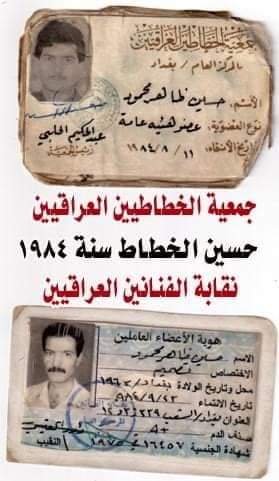 جمعية الخطاطين العراقيين
المركز العام / بغداد
الأسم : حسين ظاهر محمود
نوع العضوية : عضو هيئة عامة
تاريخ الأنتماء : ١١ / ٩ / ١٩٨٤
جمعية الخطاطيين العراقيين
حسين الخطاط سنة ١٩٨٤
نقابة الفنانين العراقيين
هوية الأعضاء العاملين
الاسم حسين ظاهر محمود
الاختصاص تصميم
محل وتاريخ الولادة بغداد
تاريخ الانتماء ٩٨٤/٩/٢٣
العنوان
صنف الدم
شهادة الجنسية
النقيب